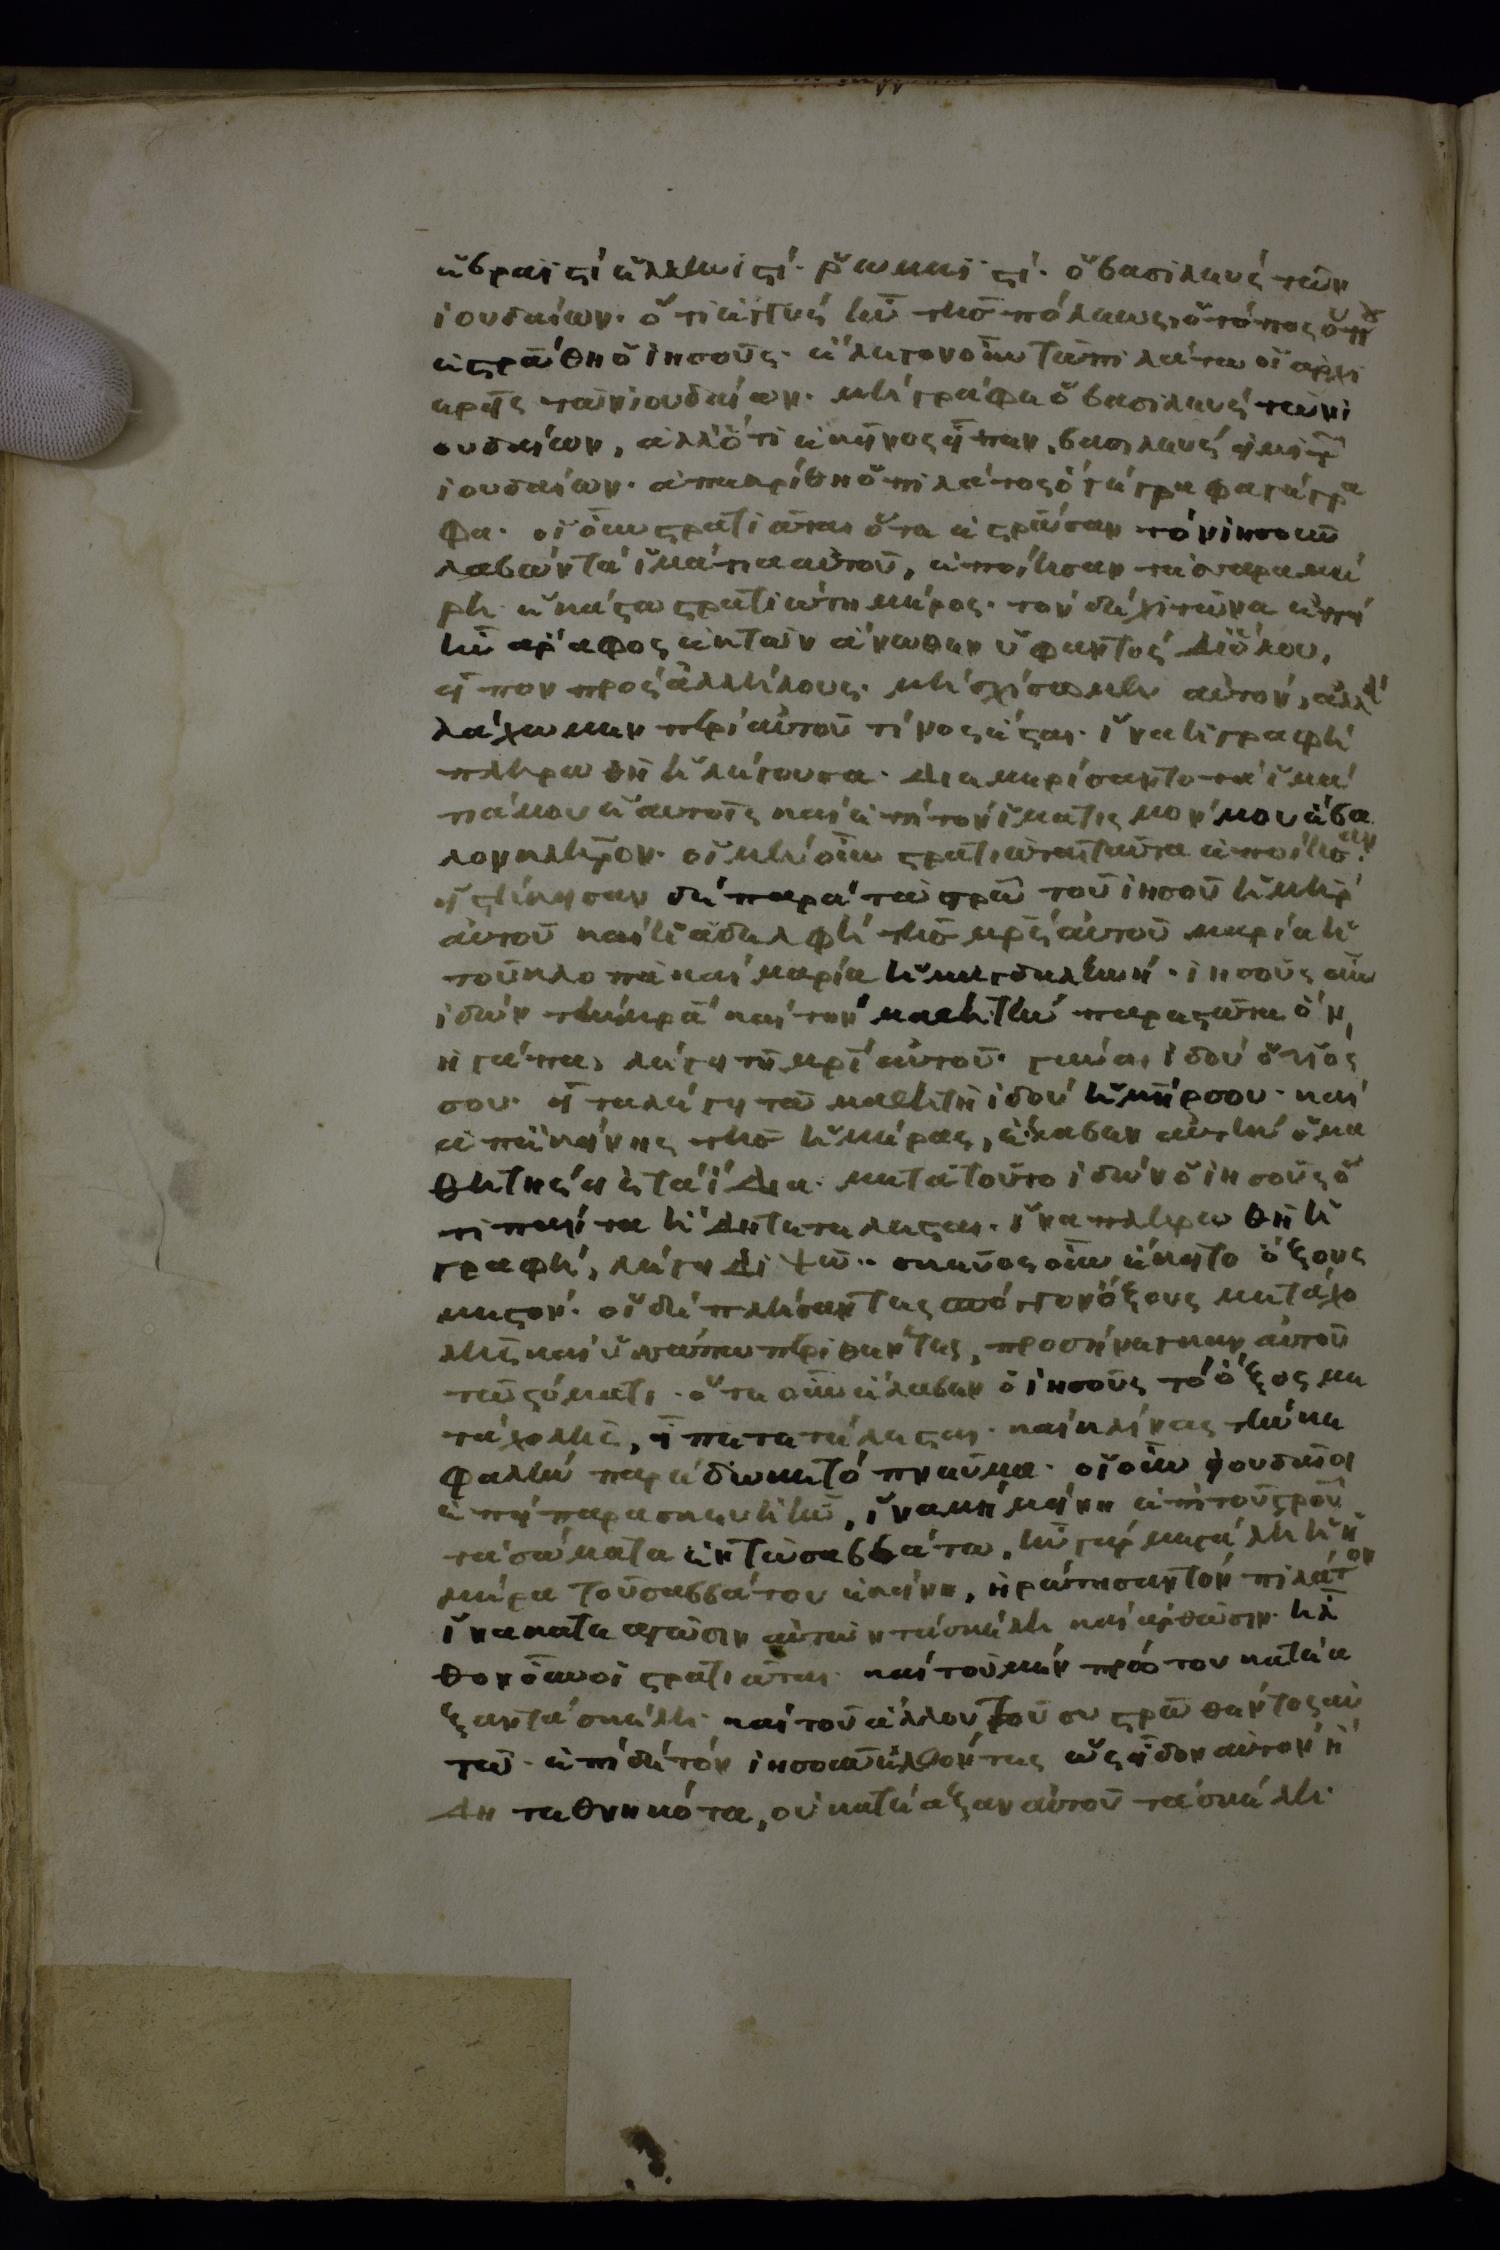 ἑβραϊστί ἑλληνιστί· ῥωμαϊστί· ὁ βασιλεύς τῶν
ἰουδαίων· ὅτι ἐγγύς ἦν τῆς πόλεως, ὁ τόπος ὅπου
ἐστρώθη ὁ ἰησοῦς· ἔλεγον οὖν τῶ πιλάτω οἱ ἀρχι
ερῆς τῶν ἰουδαίων· μή γράφε ὁ βασιλεύς τῶν ἰ
ουδαίων, ἀλλ' ὅτι ἐκεῖνος εἶπεν, βασιλεύς εἰμί τῶν
ἰουδαίων· ἀπεκρίθη ὁ πιλάτος ὅ γέγραφα γέγρα
φα· οἱ οὖν στρατιῶται ὅτε ἐστρωσαν τόν ἰησοῦν
λαβώντα ἱμάτια αὐτοῦ, ἐποίησαν τέσσαρα μέ
ρη· ἑκάστω στρατιώτη μέρος· τόν δέ χιτῶνα ἐπεί
ἦν ἄραφος ἐκ τῶν ἄνωθεν ὑφαντός δι' ὅλου,
εἶπον πρός ἀλλήλους· μή σχίσωμεν αὐτόν, ἀλλά
λάχωμεν περί αὐτοῦ τίνος ἔσται· ἵνα ἡ γραφή
πληρωθῆ ἡ λέγουσα· διεμερίσαντο τά ἱμά
τιά μου ἑαυτοῖς καί ἐπί τόν ἱματισμόν μου ἔβα
λον κλῆρον· οἱ μέν οὖν στρατιῶται ταῦτα ἐποίησαν·
εἱστήκησαν δέ παρά τῶ στρῶ τοῦ ἰησοῦ ἡ μήρ
αὐτοῦ καί ἡ ἀδελφή τῆς μρς αὐτοῦ μαρία ἡ
τοῦ κλοπᾶ καί μαρία ἡ μαγδαληνή· ἰησοῦς οὖν
ἰδών τήν μρα καί τόν μαθητήν παρεστῶτα ὅν
ἠγάπα, λέγει τῆ μρι αὐτοῦ· γύναι ἰδού ὁ υἱός
σου· εἶτα λέγει τῶ μαθητῆ ἰδού ἡ μήρ σου· καί
ἀπ' ἐκείνης τῆς ἡμέρας, ἔλαβεν αὐτήν ὁ μα
θητής εἰς τά ἴδια· μετά τοῦτο ἰδών ὁ ἰησοῦς ὅ
τι πάντα ἤδη τετέλεσται· ἵνα πληρωθῆ ἡ
γραφή, λέγει διψῶ·· σκεῦος οὖν ἔκειτο ὄξους
μεστόν· οἱ δέ πλήσαντες σπόγγον ὄξους μετά χο
λῆς καί ὑσσώπω περιθέντες, προσήνεγκαν αὐτοῦ
τῶ στόματι· ὅτε οὖν ἔλαβεν ὁ ἰησοῦς τό ὄξος με
τά χολῆς, εἶπε τετέλεσται· καί κλίνας τήν κε
φαλήν παρέδωκε τό πνεῦμα· οἱ οὖν ἰουδαῖοι
ἐπεί παρασκευή ἦν, ἵνα μή μείνη ἐπί τοῦ στροῦ
τά σώματα ἐν τῶ σαββάτω, ἦν γάρ μεγάλη ἡ ἡ
μέρα τοῦ σαββάτου ἐκείνη, ἠρώτησαν τόν πιλάτον
ἵνα κατεαγῶσιν αὐτῶν τά σκέλη καί ἀρθῶσιν· ἦλ
θον οὖν οἱ στρατιῶται· καί τοῦ μέν πρώτου κατέα
ξαν τά σκέλη· καί τοῦ ἄλλου τοῦ συστρωθέντος αὐ
τῶ· ἐπί δέ τόν ἰησοῦν ἐλθόντες ὡς εἶδον αὐτόν ἤ
δη τεθνηκότα, οὐ κατέαξαν αὐτοῦ τά σκέλη·